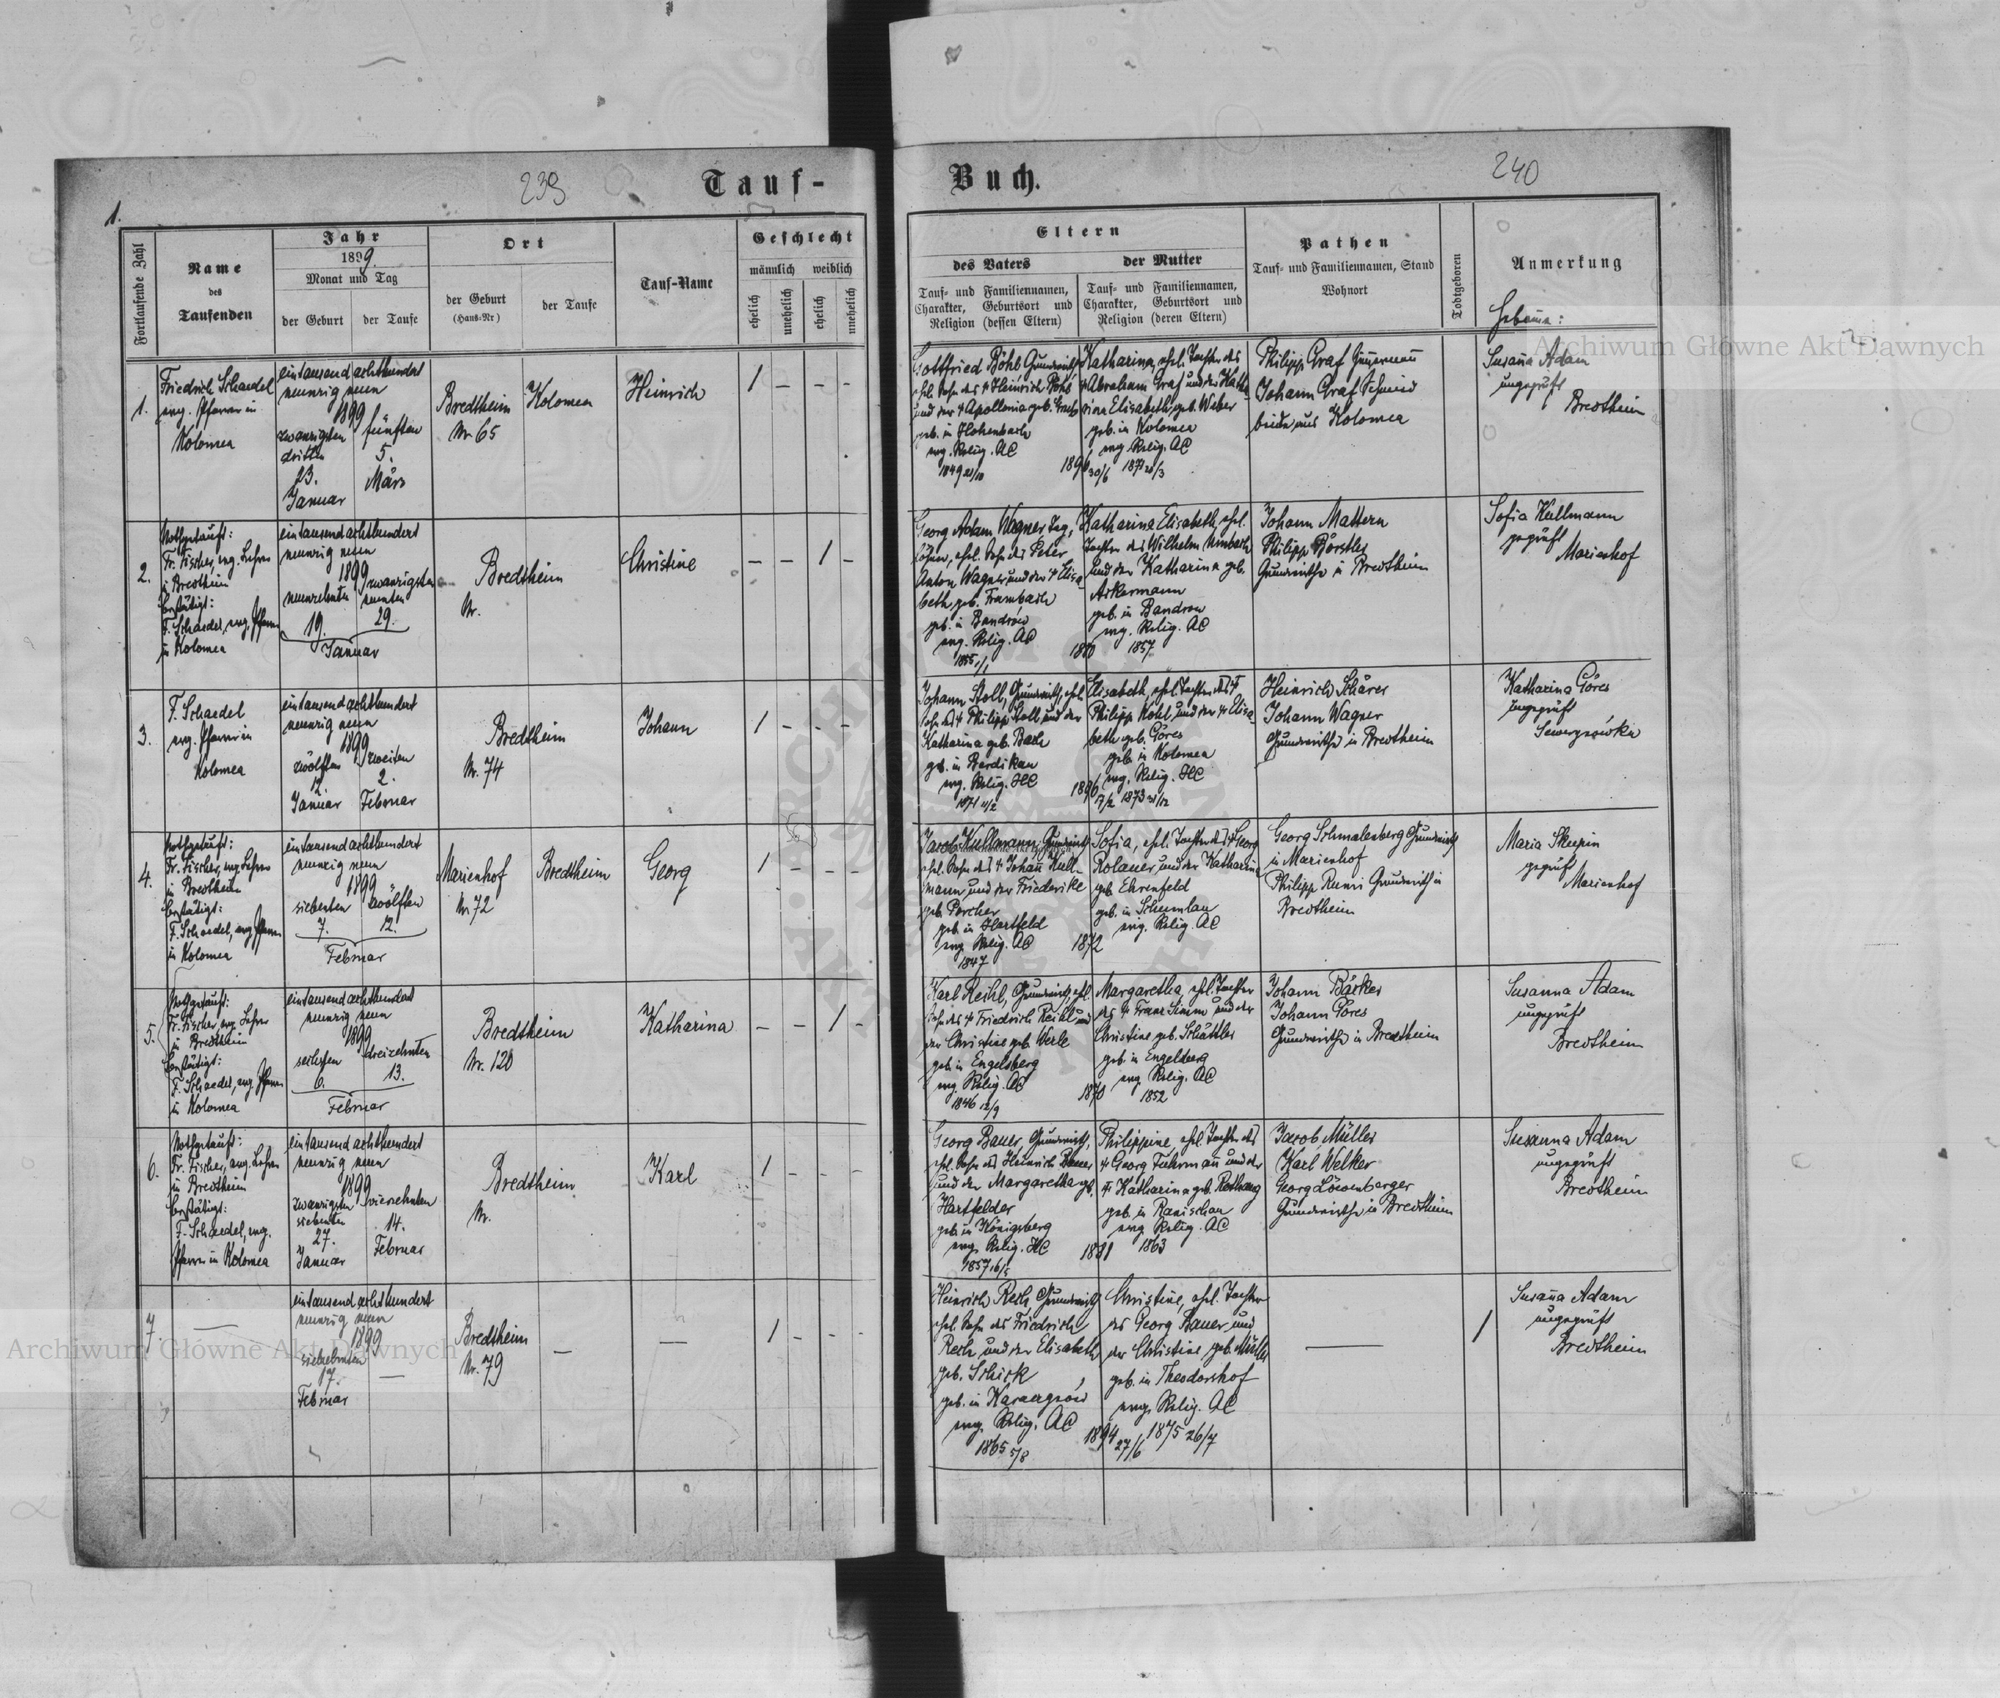 239
Tauf-
Buch.
240
1.
Fortlaufende Zahl
Name
des
Taufenden
Jahr
1899.
Monat und Tag
der Geburt
der Taufe
Ort
der Geburt
(Haus-Nr)
der Taufe
Tauf-Name
Geschlecht
männlich
weiblich
ehelich
unehelich
ehelich
unehelich
Eltern
des Vaters
der Mutter
Tauf- und Familiennamen,
Charakter, Geburtsort und
Religion (dessen Eltern)
Tauf- und Familiennamen,
Charakter, Geburtsort und
Religion (deren Eltern)
Pathen
Tauf- und Familiennamen, Stand
Wohnort
Todtgeboren
Anmerkung
Hebame:
1.
Friedrich Schaedel
evg. Pfarrer in
Kolomea
eintausend achthundert
neunzig neun
1899
zwanzigsten
dritten
23.
Januar
fünften
5.
März
Bredtheim
Nr. 65
Kolomea
Heinrich
1 - - -
Gottfried Böhl Grundwirth
ehel. Sohn des † Heinrich Böhl
und der † Apollonia geb.
geb. in Hohenbach
evg. Relig. AC
1849 21/10
Katharina, ehel. Tochter des
† Abraham Graf und der Katha-
rina Elisabeth, geb. Weber
geb. in Kolomea
evg. Relig. AC
1896 30/6
Philipp Graf
Johann Graf Schmied
beide aus Kolomea
Susana Adam
ungeprüft
Bredtheim
2.
Nothgetauft:
Fr. Fischer, evg. Lehrer
in Bredtheim
bestätigt:
F. Schaedel, evg. Pfarrer
in Kolomea
eintausend achthundert
neunzig neun
1899
neunzehnten
19.
zwanzigsten
neunten
29.
Januar
Bredtheim
Nr.
Christine
- - 1 -
Georg Adam Wagner Tag-
löhner, ehel. Sohn des Peter
Anton Wagner und der † Elisa-
beth, geb. Frambach
geb. in Bandrów
evg. Relig. AC
1855 1/1
Katharina Elisabeth, ehel.
Tochter des Wilhelm Umbach
und der Katharina geb.
Ackermann
geb. in Bandrow
evg. Relig. AC
1880
1857
Johann Mattern
Philipp Börstler
Grundwirthe in Bredtheim
Sofia Kullmann
geprüft
Marienhof
3.
F. Schaedel
evg. Pfarrer in
Kolomea
eintausend achthundert
neunzig neun
1899
zwölften
12.
Januar
zweiten
2.
Februar
Bredtheim
Nr. 74
Johann
1 - - -
Johann Stoll, Grundwirth, ehel.
Sohn des † Philipp Stoll und der
Katharina geb. Bach
geb. in Berdikau
evg. Relig. HC
1871 11/2
Elisabeth, ehel. Tochter des †
Philipp Kohl, und der † Elisa-
beth geb. Göres
geb. in Kolomea
evg. Relig. HC
1896 17/2
1873 31/12
Heinrich Schärer
Johann Wagner
Grundwirthe in Bredtheim
Katharina Göres
ungeprüft
Sewerynówka
4.
Nothgetauft:
Fr. Fischer, evg. Lehrer
in Bredtheim
bestätigt:
F. Schaedel, evg. Pfarrer
in Kolomea
eintausend achthundert
neunzig neun
1899
siebenten
7.
zwölften
12.
Februar
Marienhof
Nr 72
Bredtheim
Georg
1 - - -
Jacob Kullmann, Grundwirth
ehel. Sohn des † Johann Kull-
mann und der Friederike
geb. Porcher
geb. in Hartfeld
evg. Relig. AC
1847
Sofia, ehel. Tochter des † Georg
Rolauer, und der Katharina
geb. Ehrenfeld
geb. in Schumlau
evg. Relig. AC
1872
Georg Schmalenberg Grundwirth
in Marienhof
Philipp Rumi Grundwirth in
Bredtheim
Maria Skupin
geprüft
Marienhof
5.
Nothgetauft:
Fr. Fischer, evg. Lehrer
in Bredtheim
bestätigt:
F. Schaedel, evg. Pfarrer
in Kolomea
eintausend achthundert
neunzig neun
1899
sechsten
6.
dreizehnten
13.
Februar
Bredtheim
Nr. 120
Katharina
- - 1 -
Karl Reihl, Grundwirth, ehel.
Sohn des † Friedrich Reihl und
der Christine geb. Werle
geb. in Engelsberg
evg. Relig. AC
1846 12/9
Margaretha, ehel. Tochter
des † Franz Simm und der
Christine geb. Schättler
geb. in Engelberg
evg. Relig. AC
1870
1852
Johann Bärker
Johann Göres
Grundwirthe in Bredtheim
Susanna Adam
ungeprüft
Bredtheim
6.
Nothgetauft:
Fr. Fischer, evg. Lehrer
in Bredtheim
bestätigt:
F. Schaedel, evg.
Pfarrer in Kolomea
eintausend achthundert
neunzig neun
1899
zwanzigsten
siebenten
27.
Januar
vierzehnten
14.
Februar
Bredtheim
Nr.
Karl
1 - - -
Georg Bauer, Grundwirth,
ehel. Sohn des Heinrich Bauer
und der Margaretha geb.
Hartfelder
geb. in Königsberg
evg. Relig. HC
1857 16/5
Philippine, ehel. Tochter des
† Georg Fuhrmann und der
† Katharina geb. Rothaug
geb. in Ranischau
evg. Relig. AC
1881
1863
Jacob Müller
Karl Welker
Georg Löwenberger
Grundwirthe in Bredtheim
Susanna Adam
ungeprüft
Bredtheim
7.
eintausend achthundert
neunzig neun
1899
siebzehnten
17.
Februar
Bredtheim
Nr. 79
1 - - -
Heinrich Rech, Grundwirth
ehel. Sohn des Friedrich
Rech und der Elisabeth
geb. Schick
geb. in
evg. Relig. AC
1865 5/8
Christine, ehel. Tochter
des Georg Bauer und
der Christine geb. Müller
geb. in Theodorshof
evg. Relig. AC
1894 27/6
1875 26/7
1
Susana Adam
ungeprüft
Bredtheim
Archiwum Główne Akt Dawnych
Archiwum Główne Akt Dawnych